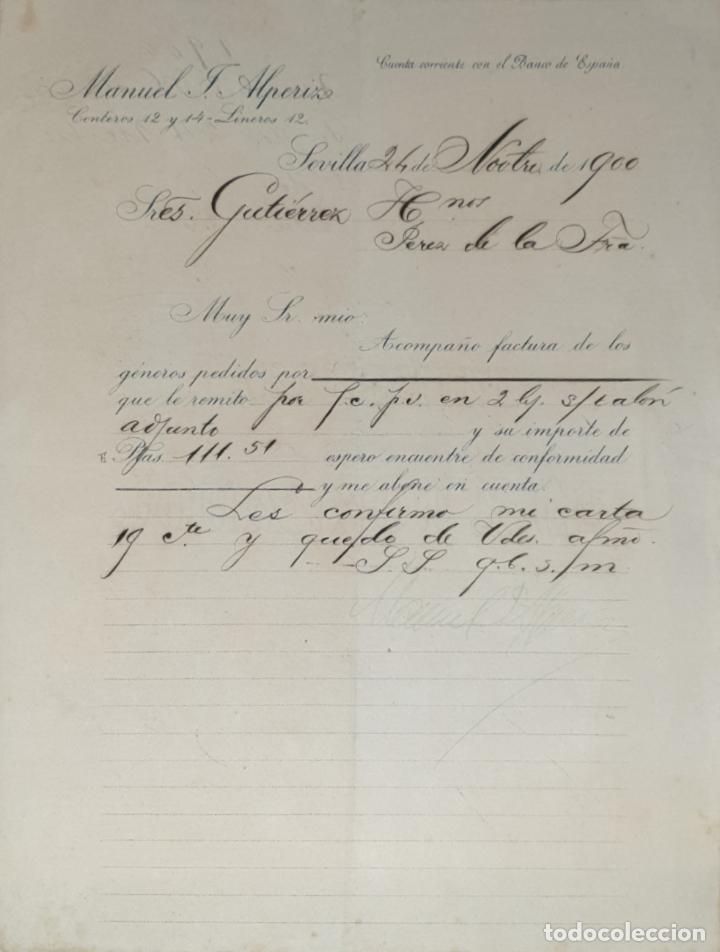 Cuenta corriente con el Banco de España
Manuel F. Alperiz
Conteros 12 y 14 - Lineros 12.
Sevilla 24 de Nbre de 1900
Sres. Gutiérrez Hnos
Jerez de la Fra.
Muy Sr. mio:
Acompaño factura de los
géneros pedidos por
que le remito por f.c. p.v. en 2 s/ talón
adjunto y su importe de
Ptas. 111.51 espero encuentre de conformidad
y me abone en cuenta.
Les confirmo mi carta
19 cte y quedo de Vdes. afmo.
S.S. q.b.s.m
Manuel
todocoleccion
todocoleccion.net